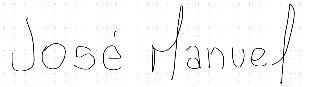 José Manuel